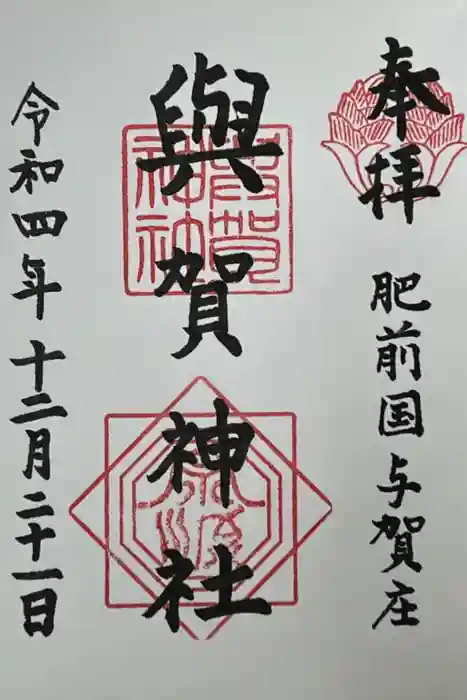 奉拝
肥前国与賀庄
與賀神社
與賀神社
令和四年十二月二十一日